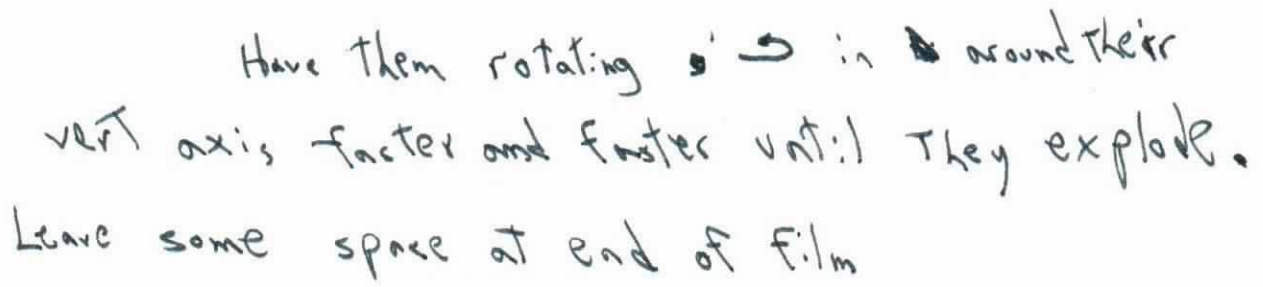 Have them rotating in around their
vert axis faster and faster until they explode.
Leave some space at end of film